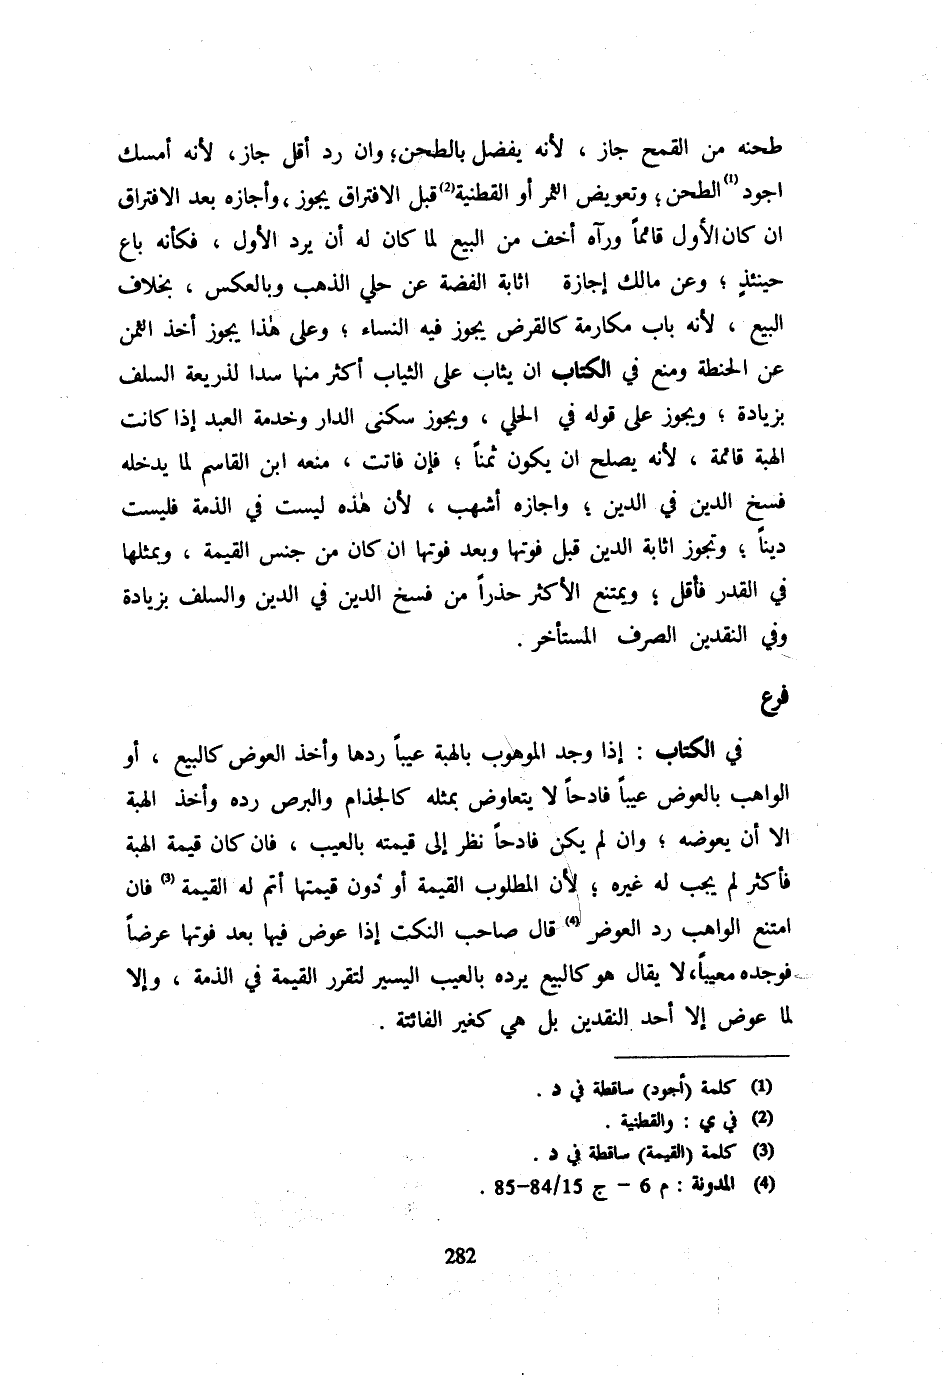 طحنه من القمح جاز ، لأنه يفضل بالطحن؛ وان رد أقل جاز، لأنه أمسك
اجود(1) الطحن ؛ وتعويض الثمر أو القطنية(2) قبل الافتراق يجوز ، وأجازه بعد الافتراق
ان كان الأول قائماً ورآه أخف من البيع لما كان له أن يرد الأول ، فكأنه باع
حينئذٍ ؛ وعن مالك إجازة اثابة الفضة عن حلي الذهب وبالعكس ، بخلاف
البيع ، لأنه باب مكارمة كالقرض يجوز فيه النساء ؛ وعلى هٰذا يجوز أخذ الثمن
عن الحنطة ومنع في الكتاب ان يثاب على الثياب أكثر منها سدا لذريعة السلف
بزيادة ؛ ويجوز على قوله في الحلي ، ويجوز سكنى الدار وخدمة العبد إذا كانت
الهبة قائمة ، لأنه يصلح ان يكون ثمناً ؛ فإن فاتت ، منعه ابن القاسم لما يدخله
فسخ الدين في الدين ؛ واجازه أشهب ، لأن هٰذه ليست في الذمة فليست
ديناً ؛ وتجوز اثابة الدين قبل فوتها وبعد فوتها ان كان من جنس القيمة ، وبمثلها
في القدر فأقل ؛ ويمتنع الأكثر حذراً من فسخ الدين في الدين والسلف بزيادة
وفي النقدين الصرف المستأخر .
فرع
في الكتاب : إذا وجد الموهوب بالهبة عيباً ردها وأخذ العوض كالبيع ، أو
الواهب بالعوض عيباً فادحاً لا يتعاوض بمثله كالجذام والبرص رده وأخذ الهبة
الا أن يعوضه ؛ وان لم يكن فادحاً نظر إلى قيمته بالعيب ، فان كان قيمة الهبة
فأكثر لم يجب له غيره ؛ لأن المطلوب القيمة أو دُون قيمتها أتم له القيمة (3) فان
امتنع الواهب رد العوض (4) قال صاحب النكت إذا عوض فيها بعد فوتها عرضاً
فوجده معيباً، لا يقال هو كالبيع يرده بالعيب اليسير لتقرر القيمة في الذمة ، وإلا
لما عوض إلا أحد النقدين بل هي كغير الفائتة .
(1) كلمة (أجود) ساقطة في د .
(2) في ي : والقطنية .
(3) كلمة (القيمة) ساقطة في د .
(4) المدونة : م 6 - ج 15/84-85 .
282